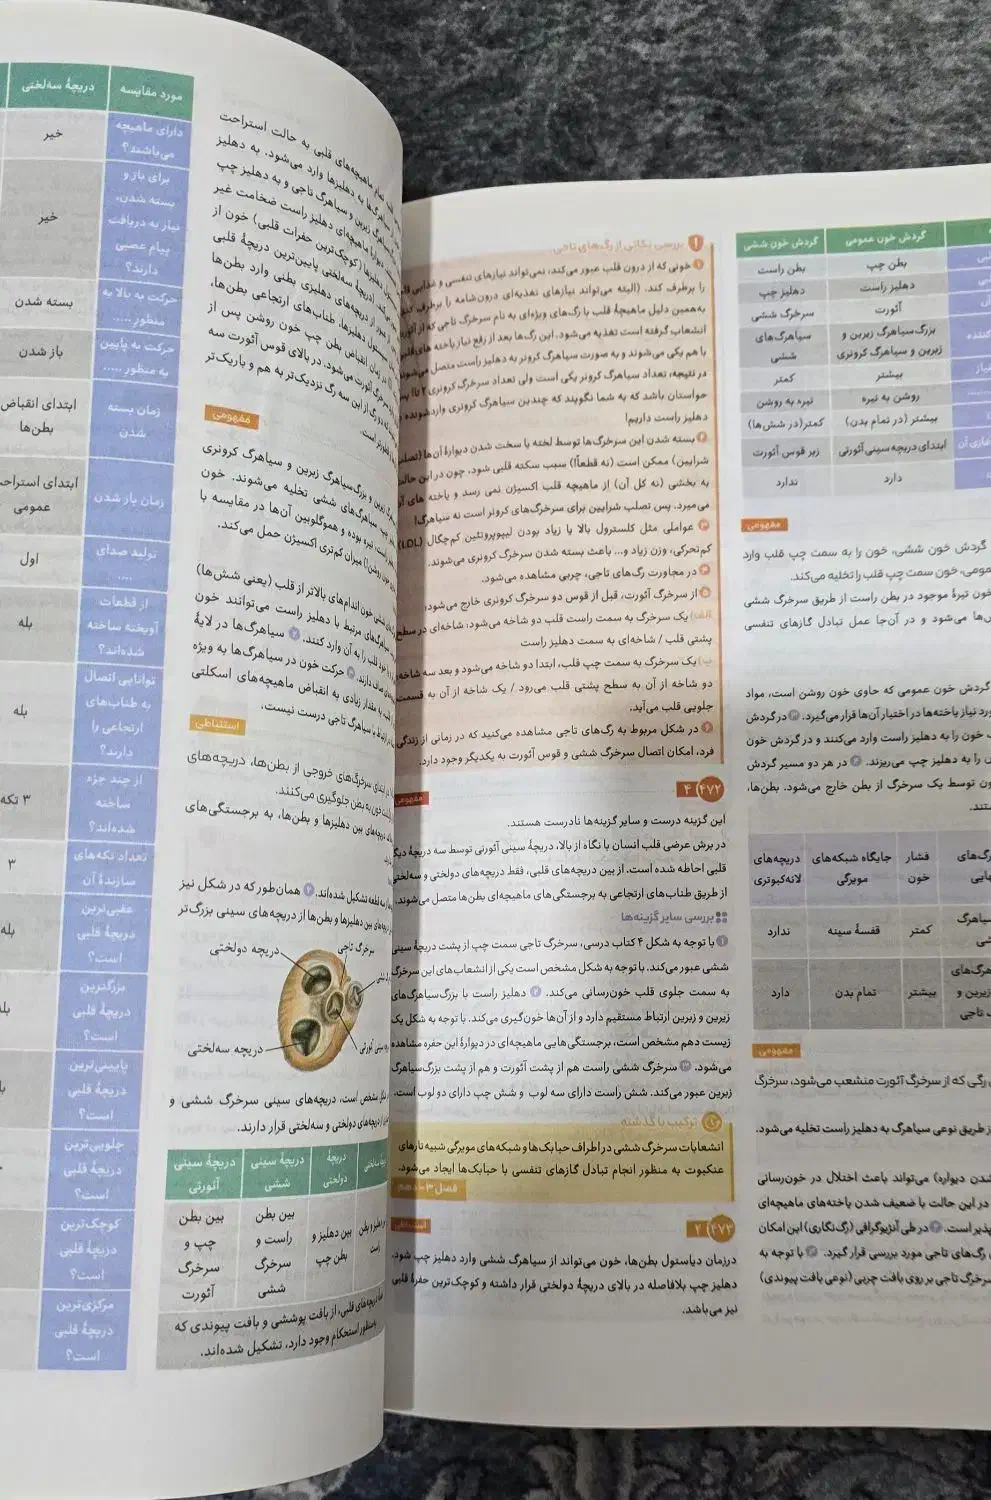 گردش خون عمومی
گردش خون ششی
بطن چپ
بطن راست
دهلیز راست
دهلیز چپ
آئورت
سرخرگ ششی
بزرگ‌سیاهرگ زیرین و
زبرین و سیاهرگ کرونری
سیاهرگ‌های
ششی
بیشتر
کمتر
روشن به تیره
تیره به روشن
بیشتر (در تمام بدن)
کمتر(در شش‌ها)
ابتدای دریچه سینی آئورتی
زیر قوس آئورت
دارد
ندارد
مفهومی
گردش خون ششی، خون را به سمت چپ قلب وارد
عمومی، خون سمت چپ قلب را تخلیه می‌کند.
خون تیرهٔ موجود در بطن راست از طریق سرخرگ ششی
می‌شود و در آن‌جا عمل تبادل گازهای تنفسی
گردش خون عمومی که حاوی خون روشن است، مواد
مورد نیاز یاخته‌ها در اختیار آن‌ها قرار می‌گیرد. ۳ در گردش
خون را به دهلیز راست وارد می‌کنند و در گردش خون
را به دهلیز چپ می‌ریزند. ۴ در هر دو مسیر گردش
توسط یک سرخرگ از بطن خارج می‌شود. بطن‌ها،
فشار
خون
جایگاه شبکه‌های
مویرگی
دریچه‌های
لانه‌کبوتری
کمتر
قفسهٔ سینه
ندارد
بیشتر
تمام بدن
دارد
مفهومی
رگی که از سرخرگ آئورت منشعب می‌شود، سرخرگ
از طریق نوعی سیاهرگ به دهلیز راست تخلیه می‌شود.
شدن دیواره) می‌تواند باعث اختلال در خون‌رسانی
در این حالت با ضعیف شدن یاخته‌های ماهیچه‌ای
پذیر است. ۲ در طی آنژیوگرافی (رگ‌نگاری) این امکان
رگ‌های تاجی مورد بررسی قرار گیرد. ۳ با توجه به
سرخرگ تاجی بر روی بافت چربی (نوعی بافت پیوندی)
بررسی نکاتی از رگ‌های تاجی
۱ خونی که از درون قلب عبور می‌کند، نمی‌تواند نیازهای تنفسی و غذایی
را برطرف کند. (البته می‌تواند نیازهای تغذیه‌ای درون‌شامه را برطرف
به‌همین دلیل ماهیچهٔ قلب با رگ‌های ویژه‌ای به نام سرخرگ تاجی که از
انشعاب گرفته است تغذیه می‌شود. این رگ‌ها بعد از رفع نیاز یاخته های
با هم یکی می‌شوند و به صورت سیاهرگ کرونر به دهلیز راست متصل
در نتیجه، تعداد سیاهرگ کرونر یکی است ولی تعداد سرخرگ کرونری ۲ تا!
حواستان باشد که به شما نگویند که چندین سیاهرگ کرونری وارد شونده
دهلیز راست داریم!
۲ بسته شدن این سرخرگ‌ها توسط لخته یا سخت شدن دیوارهٔ آن‌ها (تصلب
شرایین) ممکن است (نه قطعاً!) سبب سکته قلبی شود، چون در این حالت
به بخشی (نه کل آن) از ماهیچه قلب اکسیژن نمی رسد و یاخته های آن
می‌میرد. پس تصلب شرایین برای سرخرگ‌های کرونر است نه سیاهرگ!
۳ عواملی مثل کلسترول بالا یا زیاد بودن لیپوپروتئین کم‌چگال (LDL)
کم‌تحرکی، وزن زیاد و... باعث بسته شدن سرخرگ کرونری می‌شوند.
۴ در مجاورت رگ‌های تاجی، چربی مشاهده می‌شود.
۵ از سرخرگ آئورت، قبل از قوس دو سرخرگ کرونری خارج می‌شود:
الف) یک سرخرگ به سمت راست قلب دو شاخه می‌شود: شاخه‌ای در سطح
پشتی قلب / شاخه‌ای به سمت دهلیز راست
ب) یک سرخرگ به سمت چپ قلب، ابتدا دو شاخه می‌شود و بعد سه شاخه
دو شاخه از آن به سطح پشتی قلب می‌رود / یک شاخه از آن به قسمت
جلویی قلب می‌آید.
۶ در شکل مربوط به رگ‌های تاجی مشاهده می‌کنید که در زمانی از زندگی
فرد، امکان اتصال سرخرگ ششی و قوس آئورت به یکدیگر وجود دارد.
۴۷۲ ۴
مفهومی
این گزینه درست و سایر گزینه‌ها نادرست هستند.
در برش عرضی قلب انسان با نگاه از بالا، دریچهٔ سینی آئورتی توسط سه دریچهٔ دیگر
قلبی احاطه شده است. از بین دریچه‌های قلبی، فقط دریچه‌های دولختی و سه‌لختی
از طریق طناب‌های ارتجاعی به برجستگی های ماهیچه‌ای بطن‌ها متصل می‌شوند.
بررسی سایر گزینه‌ها
۱ با توجه به شکل ۴ کتاب درسی، سرخرگ تاجی سمت چپ از پشت دریچهٔ سینی
ششی عبور می‌کند. با توجه به شکل مشخص است یکی از انشعاب‌های این سرخرگ
به سمت جلوی قلب خون‌رسانی می‌کند. ۲ دهلیز راست با بزرگ‌سیاهرگ‌های
زیرین و زبرین ارتباط مستقیم دارد و از آن‌ها خون‌گیری می‌کند. با توجه به شکل یک
زیست دهم مشخص است، برجستگی‌هایی ماهیچه‌ای در دیوارهٔ این حفره مشاهده
می‌شود. ۳ سرخرگ ششی راست هم از پشت آئورت و هم از پشت بزرگ‌سیاهرگ
زبرین عبور می‌کند. شش راست دارای سه لوب و شش چپ دارای دو لوب است.
ترکیب با گذشته
انشعابات سرخرگ ششی در اطراف حبابک‌ها و شبکه‌های مویرگی شبیه تارهای
عنکبوت به منظور انجام تبادل گازهای تنفسی با حبابک‌ها ایجاد می‌شود.
فصل ۳ - دهم
۴۷۳ ۲
استنباطی
درزمان دیاستول بطن‌ها، خون می‌تواند از سیاهرگ ششی وارد دهلیز چپ شود.
دهلیز چپ بلافاصله در بالای دریچهٔ دولختی قرار داشته و کوچک‌ترین حفرهٔ قلبی
نیز می‌باشد.
تمام ماهیچه‌های قلبی به حالت استراحت
به دهلیزها وارد می‌شود. به دهلیز
زبرین و سیاهرگ تاجی و به دهلیز چپ
ماهیچه‌ای دهلیز راست ضخامت غیر
(کوچک‌ترین حفرات قلبی) خون از
سه‌لختی پایین‌ترین دریچهٔ قلبی
از دریچه‌های دهلیزی بطنی وارد بطن‌ها
دهلیزها، طناب‌های ارتجاعی بطن‌ها،
انقباض بطن چپ خون روشن پس از
سرخرگ آئورت می‌شود. در بالای قوس آئورت سه
رگ از این سه رگ نزدیک‌تر به هم و باریک‌تر
مفهومی
زبرین و بزرگ‌سیاهرگ زیرین و سیاهرگ کرونری
سیاهرگ‌های ششی تخلیه می‌شوند. خون
تیره بوده و هموگلوبین آن‌ها در مقایسه با
خون روشن) میزان کم‌تری اکسیژن حمل می‌کند.
خون اندام‌های بالاتر از قلب (یعنی شش‌ها)
سیاهرگ‌های مرتبط با دهلیز راست می‌توانند خون
خود قلب را به آن وارد کنند. ۲ سیاهرگ‌ها در لایهٔ
صاف دارند. ۳ حرکت خون در سیاهرگ‌ها به ویژه
به مقدار زیادی به انقباض ماهیچه‌های اسکلتی
سیاهرگ تاجی درست نیست.
استنباطی
ابتدای سرخرگ‌های خروجی از بطن‌ها، دریچه‌های
خون به بطن جلوگیری می‌کنند.
دریچه‌های بین دهلیزها و بطن‌ها، به برجستگی‌های
قطعه تشکیل شده‌اند. ۲ همان‌طور که در شکل نیز
دریچه‌های بین دهلیزها و بطن‌ها از دریچه‌های سینی بزرگ‌تر
سرخرگ تاجی
دریچه دولختی
سینی آئورتی
دریچه سه‌لختی
مشخص است، دریچه‌های سینی سرخرگ ششی و
دریچه‌های دولختی و سه‌لختی قرار دارند.
دریچهٔ
دولختی
دریچهٔ سینی
ششی
دریچهٔ سینی
آئورتی
بین دهلیز و
بطن چپ
بین بطن
راست و
سرخرگ
ششی
بین بطن
چپ و
سرخرگ
آئورت
دریچه‌های قلبی، از بافت پوششی و بافت پیوندی که
به‌منظور استحکام وجود دارد، تشکیل شده‌اند.
مورد مقایسه
دریچهٔ سه‌لختی
دارای ماهیچه
می‌باشند؟
خیر
برای باز و
بسته شدن،
نیاز به دریافت
پیام عصبی
دارند؟
خیر
حرکت به بالا به
منظور .....
بسته شدن
حرکت به پایین
به منظور .....
باز شدن
زمان بسته
شدن
ابتدای انقباض
بطن‌ها
زمان باز شدن
ابتدای استراحت
عمومی
تولید صدای
....
اول
از قطعات
آویخته ساخته
شده‌اند؟
بله
توانایی اتصال
به طناب‌های
ارتجاعی را
دارند؟
بله
از چند جزء
ساخته
شده‌اند؟
۳ تکه
تعداد تکه‌های
سازندهٔ آن
۳
عقبی‌ترین
دریچهٔ قلبی
است؟
بله
بزرگترین
دریچهٔ قلبی
است؟
پایینی‌ترین
دریچهٔ قلبی
است؟
جلویی‌ترین
دریچهٔ قلبی
است؟
کوچک‌ترین
دریچهٔ قلبی
است؟
مرکزی‌ترین
دریچهٔ قلبی
است؟